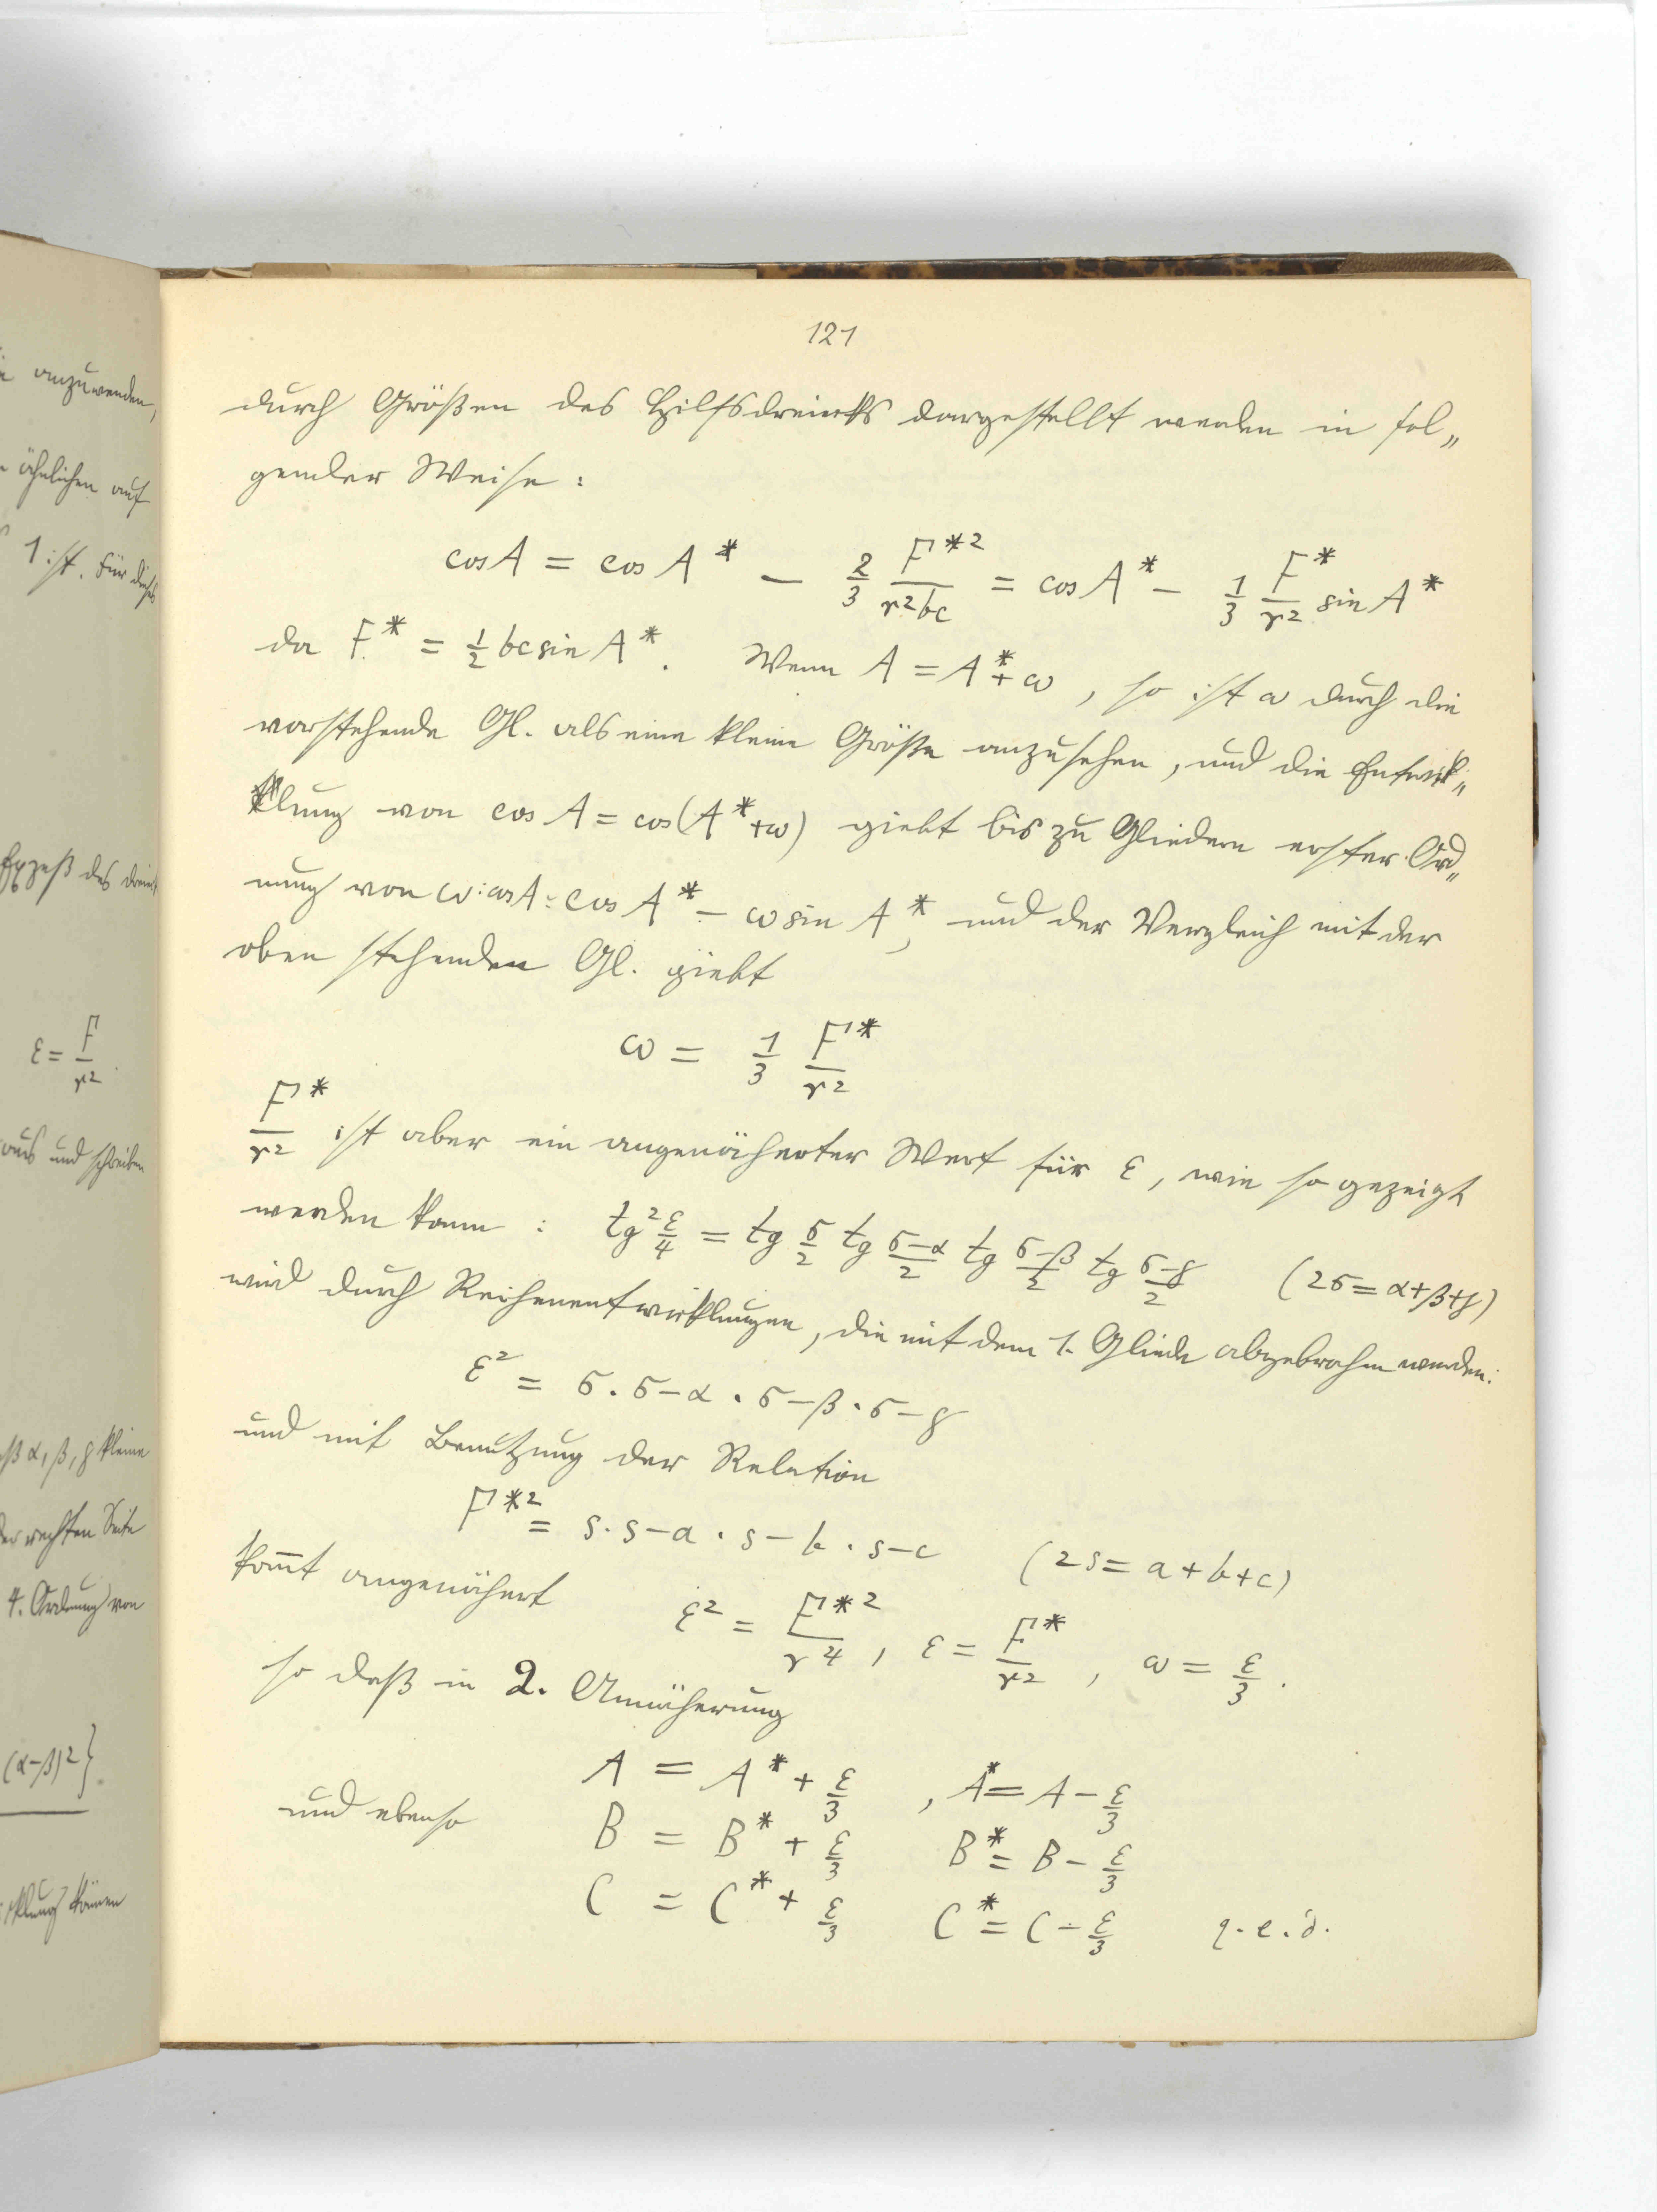 121
durch Größen des Hilfsdreiecks dargestellt werden in fol„
gender Weise:
cos A = cos A* − 2/3 F*²/r²bc = cos A* − 1/3 F*/r² sin A*
da F* = 1/2 bc sin A*. Wenn A = A* + ω, so ist ω durch die
vorstehende Gl. als eine kleine Größe anzusehen, und die Entwick„
klung von cos A = cos(A* + ω) giebt bis zu Gliedern erster Ord„
nung von ω: cos A = cos A* − ω sin A*, und der Vergleich mit der
oben stehenden Gl. giebt
ω = 1/3 F*/r²
F*/r² ist aber ein angenäherter Wert für ε, wie so gezeigt
werden kann: tg² ε/4 = tg σ/2 tg σ−α/2 tg σ−β/2 tg σ−γ/2 (2σ = α+β+γ)
wird durch Reihenentwicklungen, die mit dem 1. Gliede abgebrochen werden:
ε² = σ . σ−α . σ−β . σ−γ
und mit Benutzung der Relation
F*² = s . s−a . s−b . s−c (2s = a+b+c)
kom̅t angenähert ε² = F*²/r⁴, ε = F*/r², ω = ε/3.
so daß in 2. Annäherung
A = A* + ε/3, A* = A − ε/3
und ebenso B = B* + ε/3 B* = B − ε/3
C = C* + ε/3 C* = C − ε/3 q.e.d.
anzuwenden,
ähnlichen auf
1 ist. Für dieses
Exzeß des Dreiecks
ε = F/r².
aus und schreiben
α, β, γ kleine
der rechten Seite
4. Ordnung von
(α−β)²}.
klung können